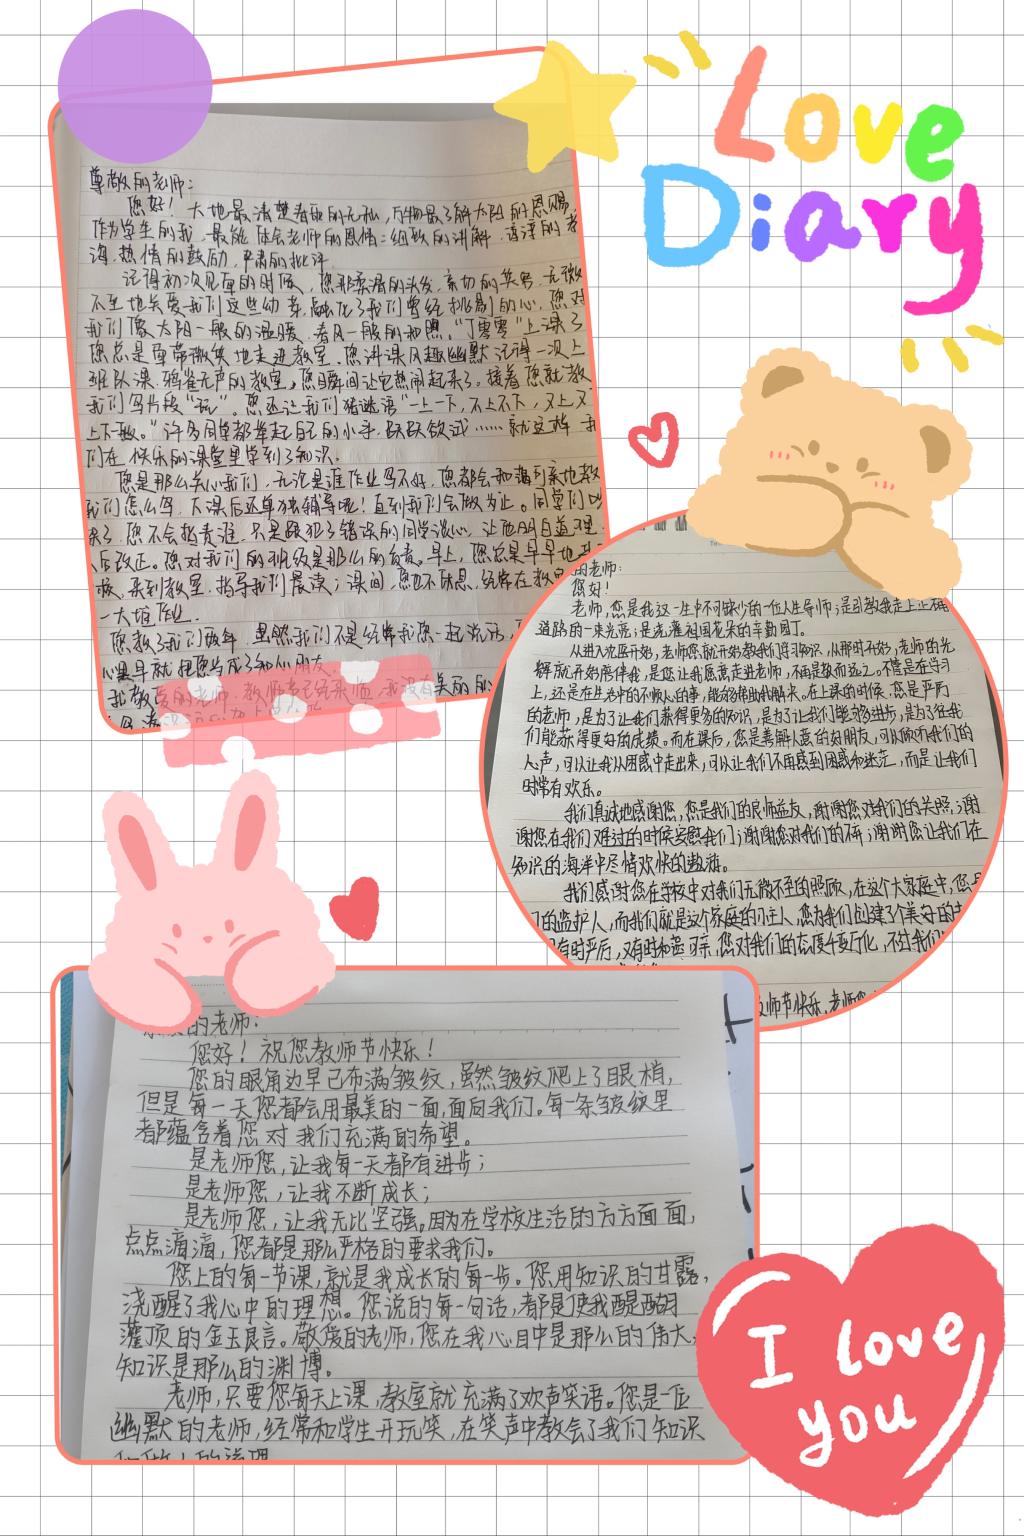 Love
Diary
尊敬的老师：
您好！大地最清楚春雨的无私，万物最了解太阳的恩赐，
作为学生的我，最能体会老师的恩情：细致的讲解，谆谆的教
诲，热情的鼓励，严肃的批评。
记得初次见面的时候，您那乌黑的头发，亲切的笑容，无微
不至地关爱我们这些幼芽，融化了我们曾经挑剔的心。您对
我们像太阳一般的温暖，春风一般的和煦。“丁零零”上课了
您总是面带微笑地走进教室。您讲课风趣幽默，记得一次上
班队课，鸦雀无声的教室，您瞬间让它热闹起来了。接着您就教
我们写片段“玩”。您还让我们猜谜语“一上一下，不上不下，又上又
上下一致。”许多同学都举起自己的小手，跃跃欲试……就这样，我
们在快乐的课堂里学到了知识。
您是那么关心我们，无论是谁作业写不好，您都会和蔼可亲地教
我们怎么写，下课后还单独辅导呢！直到我们会做为止。同学们
您不会指责谁，只是跟犯了错误的同学谈心，让他明白道理，
后改正。您对我们的班级是那么的负责。早上，您总是早早地
来到教室，指导我们晨读；课间，您也不休息，经常在教室
一大堆作业。
您教了我们两年，虽然我们不是经常和您一起说话，
心里早就把您当成了知心朋友。
我敬爱的老师，教师节已经来临，我没有美丽的
的老师：
您好！
老师，您是我这一生中不可缺少的一位人生导师；是引教我走上正确
道路的一束光亮；是浇灌祖国花朵的辛勤园丁。
从进入校园开始，老师您就开始教我们学习知识，从那时开始，老师的光
辉就开始陪伴我，是您让我愿意走进老师，不再是敬而远之。不管是在学习
上，还是在生活中的不顺人的事，能够帮助我解决。在上课的时候，您是严厉
的老师，是为了让我们获得更多的知识，是为了让我们能够进步，是为了在我
们能获得更好的成绩。而在课后，您是善解人意的好朋友，可以倾听我们的
心声，可以让我从困惑中走出来，可以让我们不再感到困惑和迷茫，而是让我们
时常有欢乐。
我们真诚地感谢您，您是我们的良师益友，谢谢您对我们的关照；谢
谢您在我们难过的时候安慰我们；谢谢您对我们的不弃；谢谢您让我们在
知识的海洋中尽情欢快的遨游。
我们感谢您在学校中对我们无微不至的照顾，在这个大家庭中，您是
们的监护人，而我们就是这个家庭的小主人，您为我们创建了个美好的
有时严厉，又有时和蔼可亲，您对我们的态度千变万化，不过我们
教师节快乐，老师您
的老师：
您好！祝您教师节快乐！
您的眼角边早已布满皱纹，虽然皱纹爬上了眼梢，
但是每一天您都会用最美的一面，面向我们。每一条皱纹里
都蕴含着您对我们充满的希望。
是老师您，让我每一天都有进步；
是老师您，让我不断成长；
是老师您，让我无比坚强。因为在学校生活的方方面面，
点点滴滴，您都是那么严格的要求我们。
您上的每一节课，就是我成长的每一步。您用知识的甘露，
浇醒了我心中的理想。您说的每一句话，都是使我醍醐
灌顶的金玉良言。敬爱的老师，您在我心目中是那么的伟大，
知识是那么的渊博。
老师，只要您每天上课，教室就充满了欢声笑语。您是一位
幽默的老师，经常和学生开玩笑，在笑声中教会了我们知识
I love
you